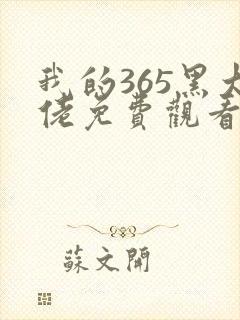 我的365黑大
佬免費觀看
蘇文開